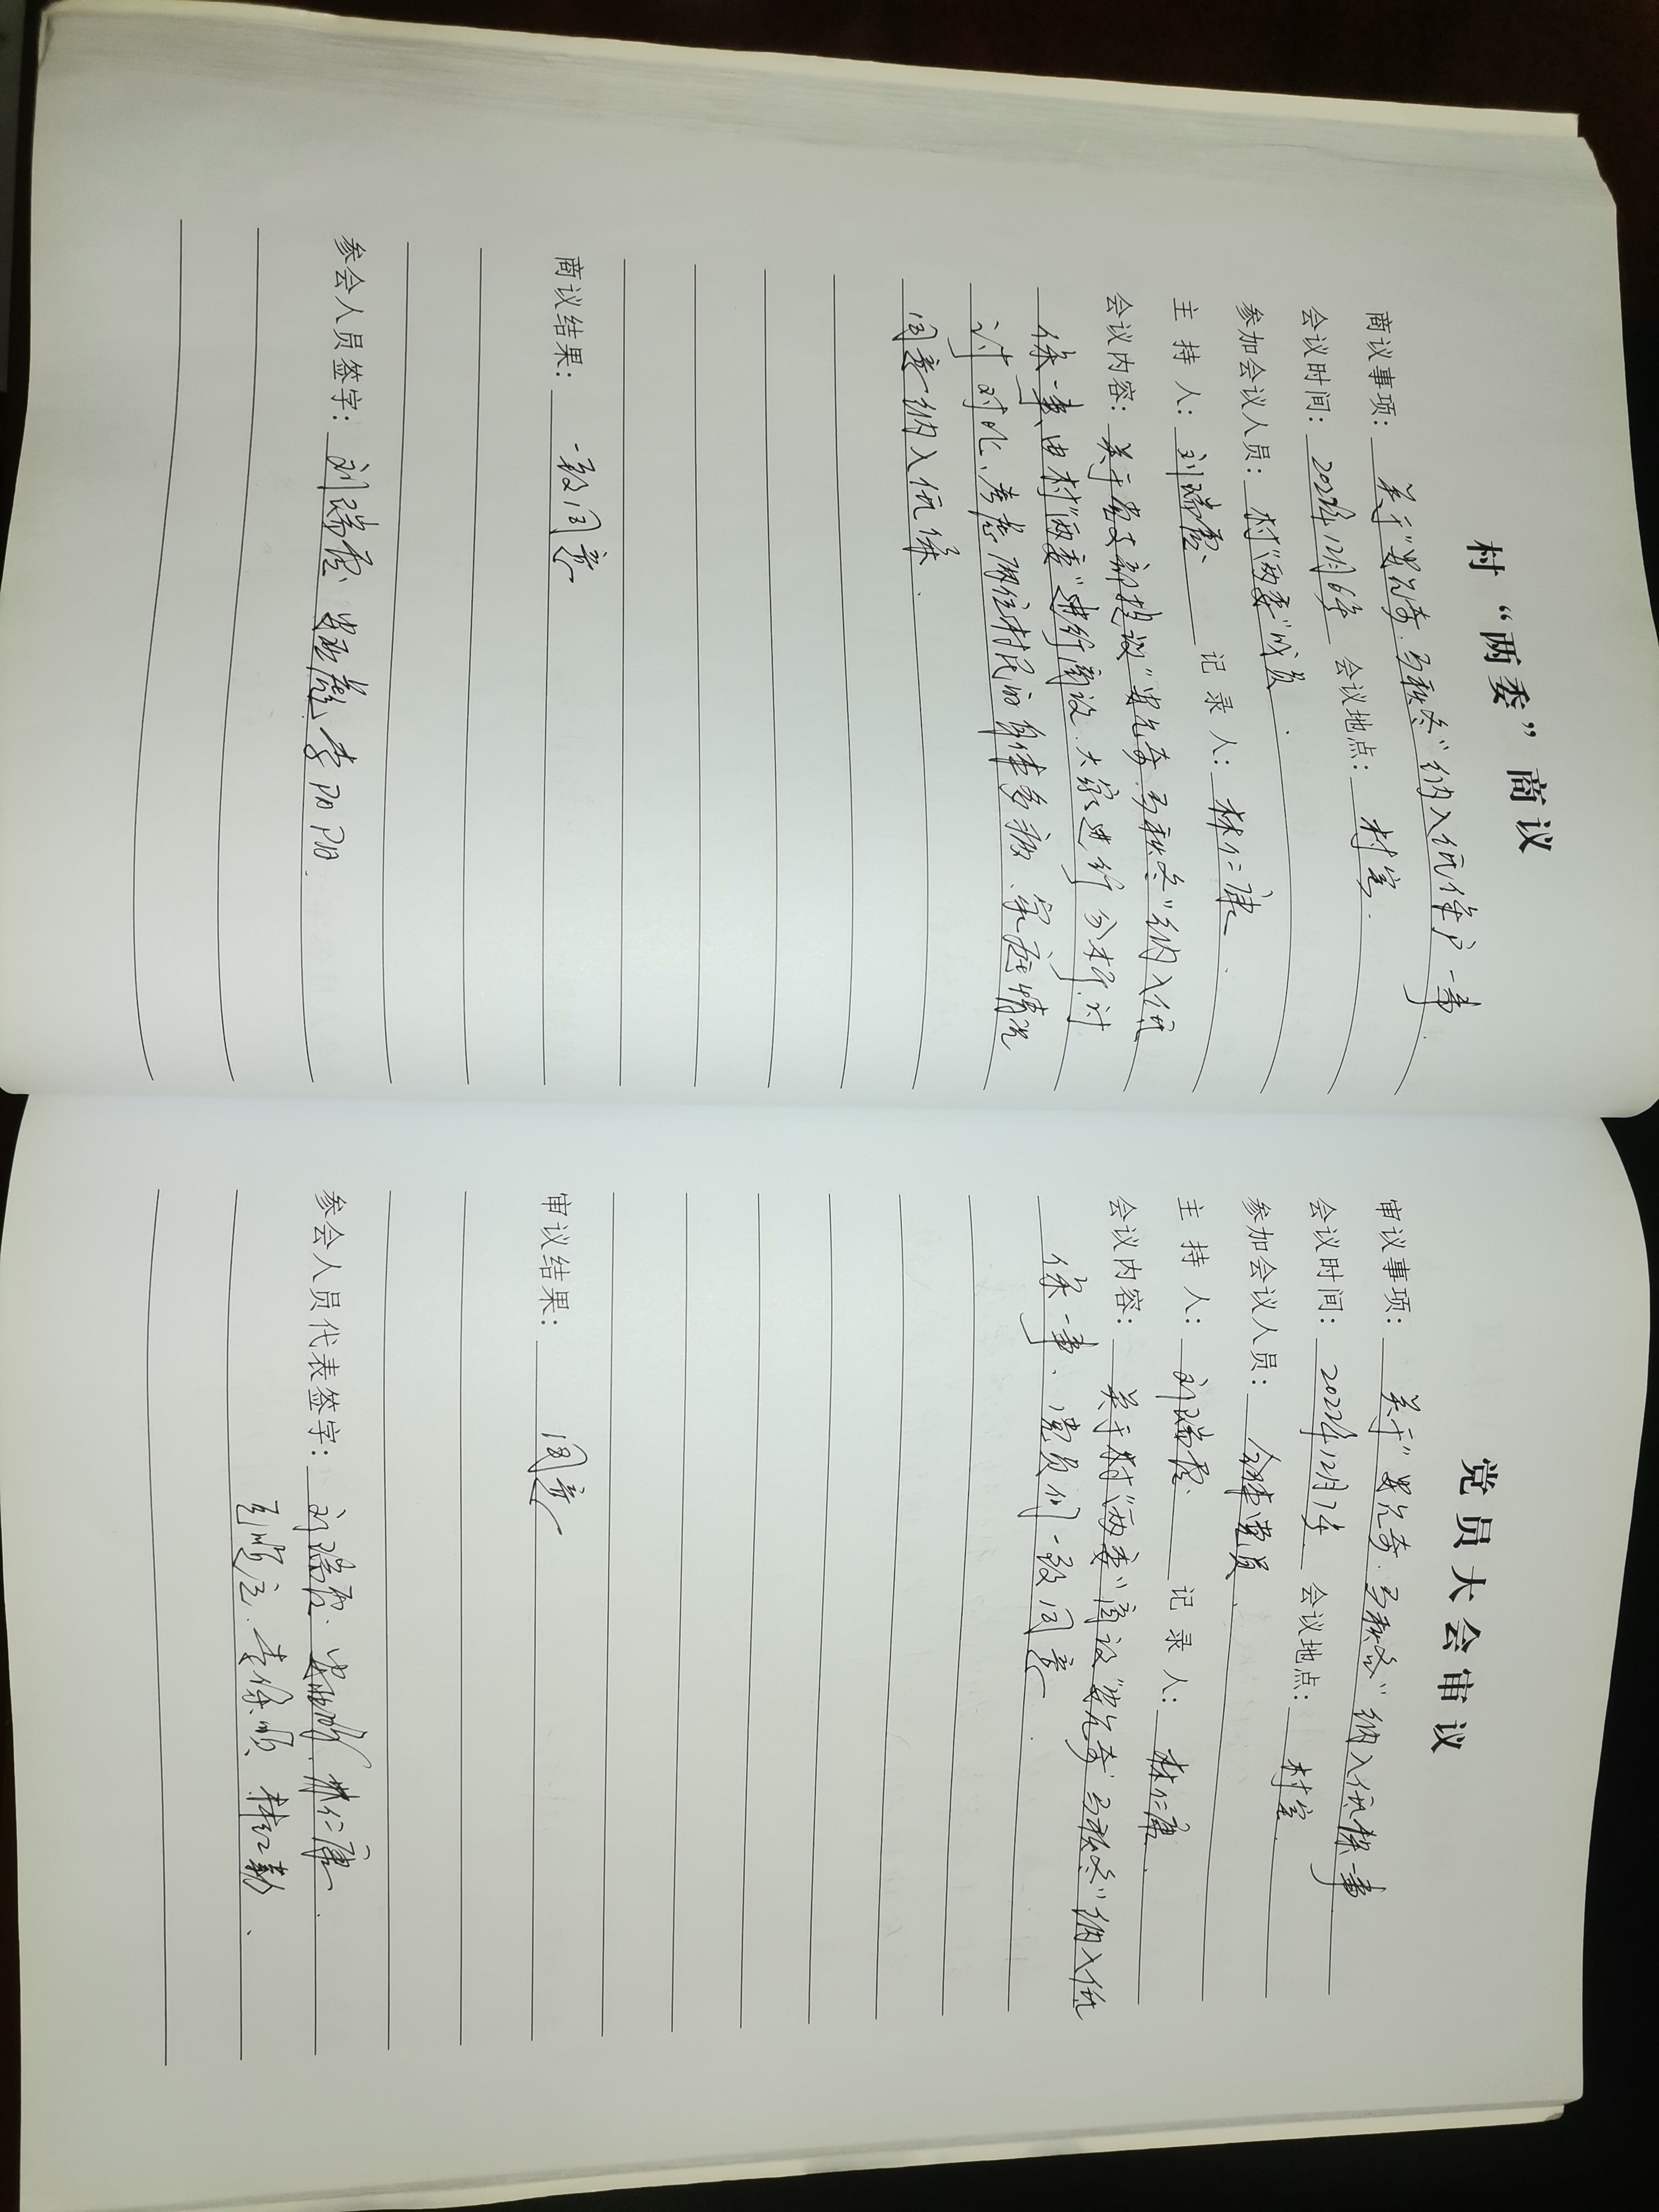 村“两委”商议
商议事项：关于“安允奇.马秋冬”纳入低保户一事.
会议时间：2022年12月6号 会议地点：村室.
参加会议人员：村“两委”成员.
主持人：刘瑞霞 记录人：林仁康.
会议内容：关于党支部提议“安允奇.马秋冬”纳入低
保一事,由村“两委”进行商议.大家进行分析.讨
讨对比、考虑两位村民的身体多病、家庭情况
同意纳入低保.
商议结果：一致同意
参会人员签字：刘瑞霞 安亚彪.李阳阳.
党员大会审议
审议事项：关于“安允奇.马秋冬”纳入低保一事.
会议时间：2022年12月7号. 会议地点：村室.
参加会议人员：全体党员.
主持人：刘瑞霞. 记录人：林仁康.
会议内容：关于村“两委”商议“安允奇 马秋冬”纳入低
保一事、党员们一致同意.
审议结果：同意
参会人员代表签字：刘瑞霞. 林仁康.
李保顺. 林红勤.